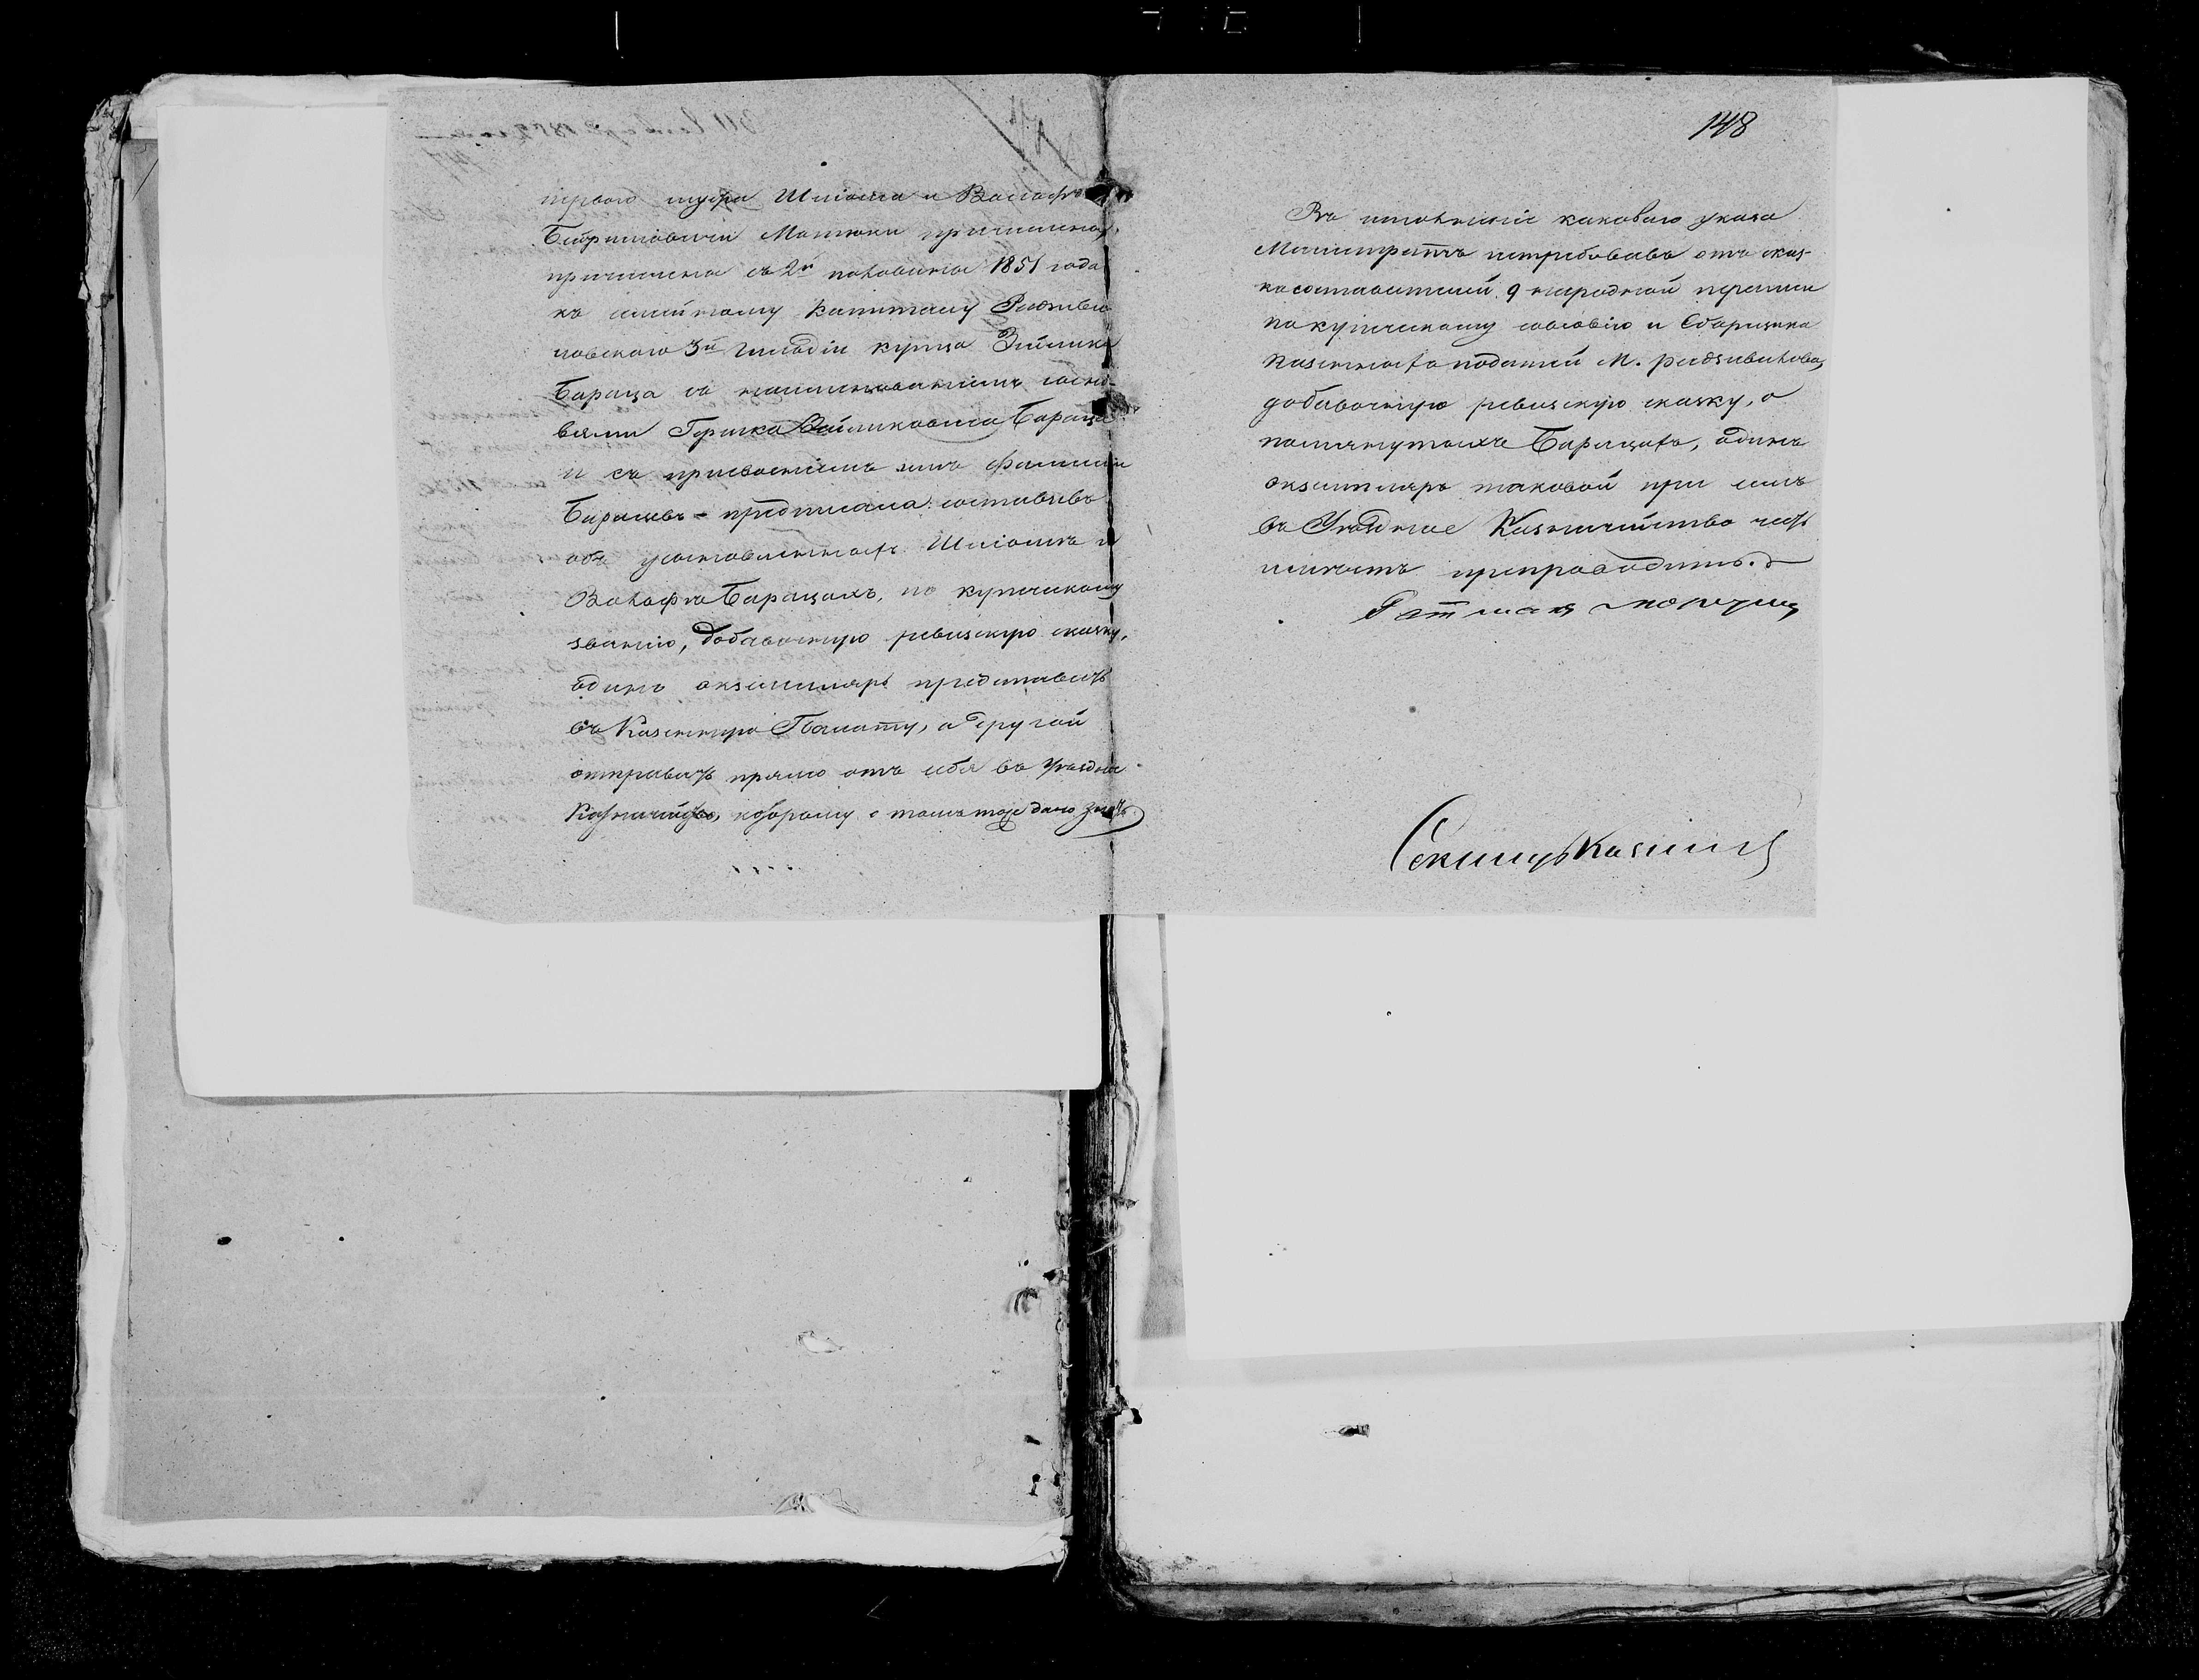 148
перваго мужа Шліома и Волофъ
причислены съ 2й половины 1851 года
къ семейному капиталу Радзиви-
ловскаго 3й Гильдіи купца Зейлика
Бараца съ наименованіемъ сыно-
вьями Гершка Зейликовича Бараца
и съ присвоеніемъ имъ фамиліи
Барацевъ - предписала: составивъ
объ усыновленныхъ Шліомѣ и
Волофѣ Барацахъ, по купеческому
званію, добавочную ревизскую сказку,
одинъ экземпляръ представить
въ Казенную Палату, а другой
отправить прямо отъ себя въ Уѣздное
Казначейство, которому о томъ тоже дано знать
Во исполненіе каковаго указа
Магистратъ истребовавъ отъ сказ-
косоставителей 9 народной переписи
по купеческому сословію и Сборщика
казенныхъ податей М. Радзивилова,
добавочную ревизскую сказку, о
помянутыхъ Барацахъ, одинъ
экземпляръ таковой при семъ
въ Уѣздное Казначейство честь
имѣетъ препроводить.
Ратманъ
Секретарь